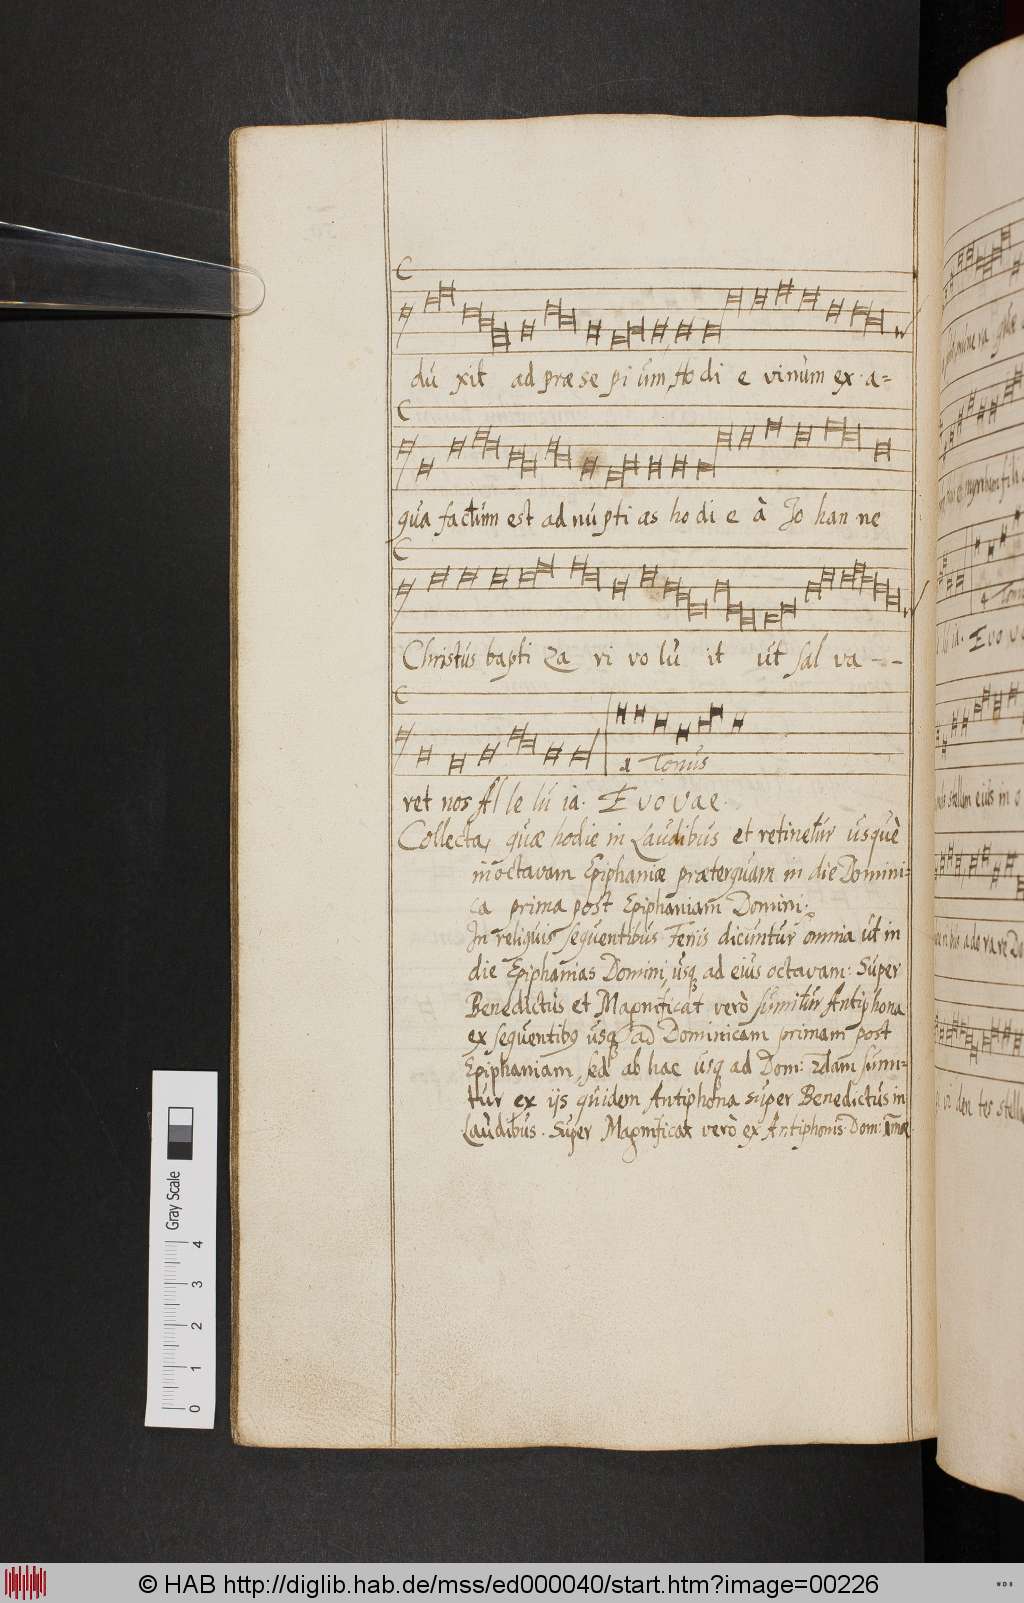 C
dú xit ad præ se pi úm, Ho di e vinúm ex a=
C
qúa factúm est ad nú pti as ho di e à Jo han ne
C
Christús bapti za ri vo lú it út sal va - -
C
1 Tonús
ret nos Al le lú ia. E v o v a e.
Collecta, qúæ hodie in Laúdibús et retinetúr úsqúè
in octavam Epiphaniæ præterqúam in die Domini=
ca prima post Epiphaniam Domini.
In reliqúis seqúentibús Ferijs dicúntúr omnia út in
die Epiphanias Domini, úsq ad eiús octavam: Súper
Benedictús et Magnificat verò súmitúr Antiphona
ex seqúentib9 úsq ad Dominicam primam post
Epiphaniam, sed ab hac úsq ad Dom: 2dam súmi=
túr ex ijs qúidem Antiphona súper Benedictús in
Laúdibús. Súper Magnificat verò ex Antiphonis Dom:
4 Tonú
E v o v
Gray Scale
0 1 2 3 4
© HAB http://diglib.hab.de/mss/ed000040/start.htm?image=00226